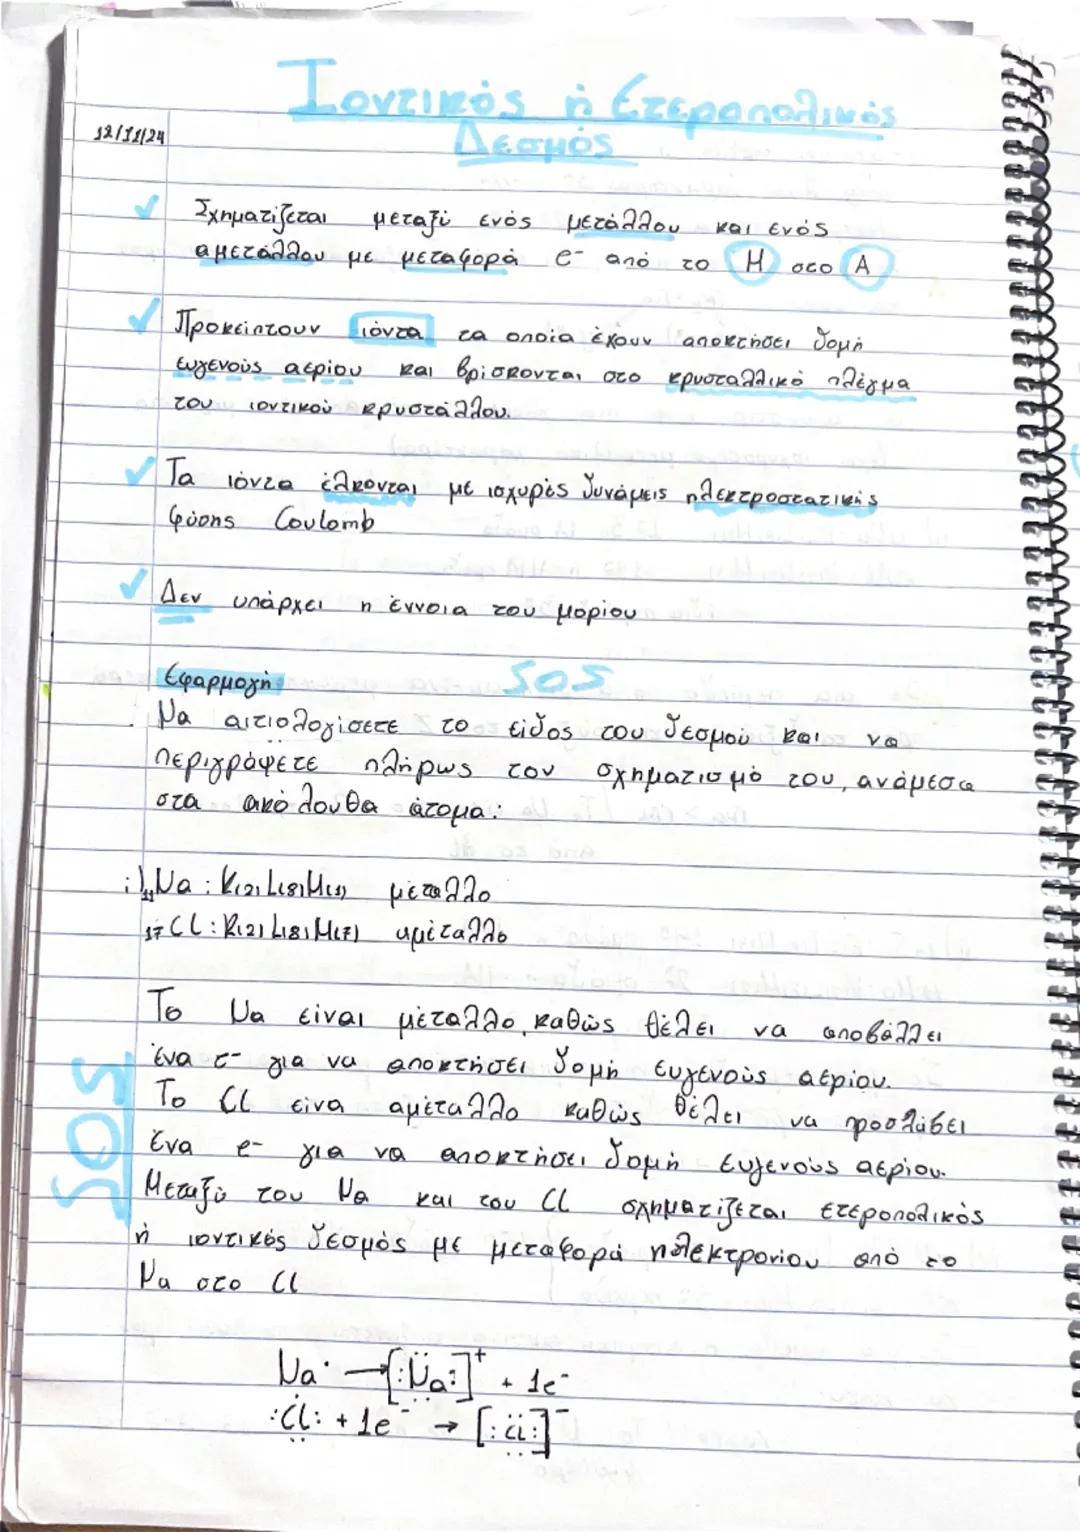 Ιοντικός ή Ετεροπολικός
Δεσμός
12/11/24
Σχηματίζεται μεταξύ ενός μετάλλου και ενός
αμετάλλου με μεταφορά e- από το Μ στο Α
Προκείπτουν ιόντα τα οποία έχουν αποκτήσει δομή
ευγενούς αερίου και βρίσκονται στο κρυσταλλικό πλέγμα
του ιοντικού κρυστάλλου.
Τα ιόντα έλκονται με ισχυρές δυνάμεις ηλεκτροστατικής
φύσης Coulomb
Δεν υπάρχει η έννοια του μορίου
Εφαρμογή SOS
Να αιτιολογίσετε το είδος του δεσμού και να
περιγράψετε πλήρως τον σχηματισμό του, ανάμεσα
στα ακόλουθα άτομα:
i) 11Na: K(2) L(8) M(1) μέταλλο
17Cl: K(2) L(8) M(7) αμέταλλο
Το Na είναι μέταλλο, καθώς θέλει να αποβάλλει
ένα e- για να αποκτήσει δομή ευγενούς αερίου.
Το Cl είνα αμέταλλο καθώς θέλει να προσλάβει
SOS
Ένα e- για να αποκτήσει δομή ευγενούς αερίου.
Μεταξύ του Na και του Cl σχηματίζεται ετεροπολικός
ή ιοντικός δεσμός με μεταφορά ηλεκτρονίου από το
Na στο Cl
Na· → [:Na:]+ + 1e-
:Cl: + 1e- → [:Cl:]-